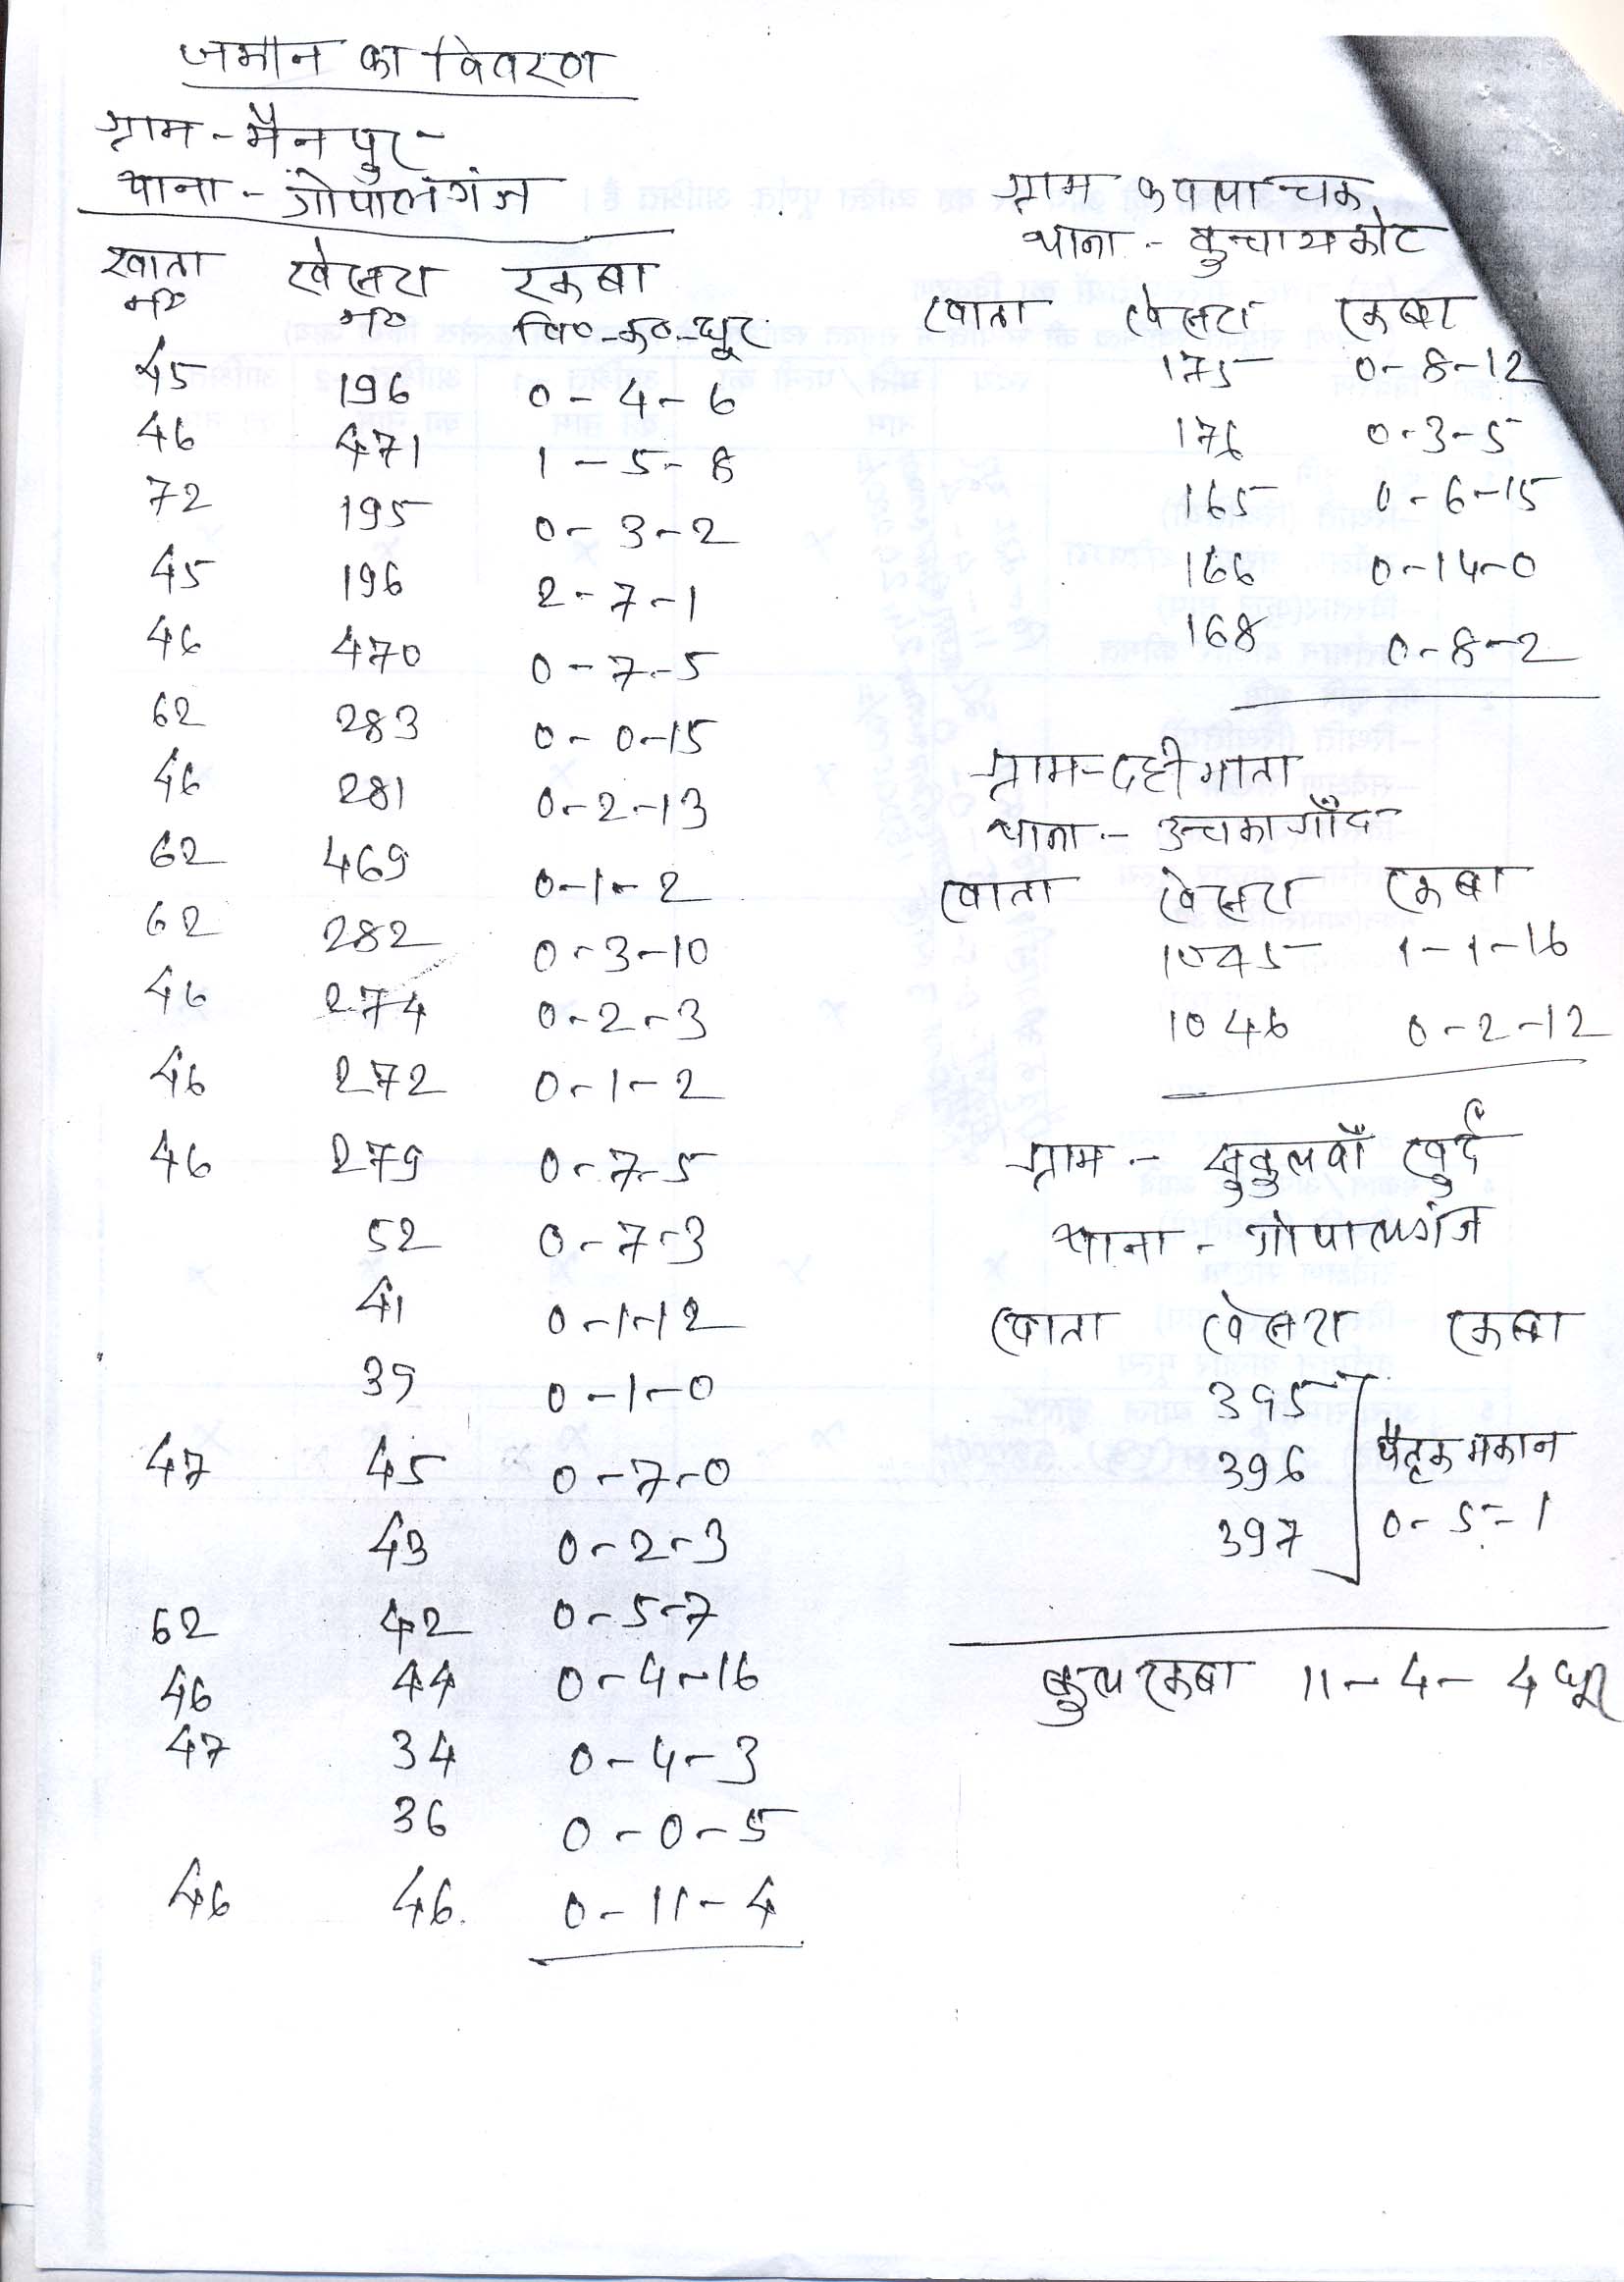 जमीन का विवरण
ग्राम - मैनपुर -
थाना - गोपालगंज
खाता खेसरा रकबा
नं० नं० बि०-क०-धूर
45 196 0-4-6
46 471 1-5-8
72 195 0-3-2
45 196 2-7-1
46 470 0-7-5
62 283 0-0-15
46 281 0-2-13
62 469 0-1-2
62 282 0-3-10
46 274 0-2-3
46 272 0-1-2
46 279 0-7-5
52 0-7-3
41 0-1-12
39 0-1-0
47 45 0-7-0
43 0-2-3
62 42 0-5-7
46 44 0-4-16
47 34 0-4-3
36 0-0-5
46 46. 0-11-4
ग्राम चक
थाना - कुचायकोट
खाता खेसरा रकबा
175 0-8-12
176 0-3-5
165 0-6-15
166 0-14-0
168 0-8-2
ग्राम - दहीभाता
थाना - उचकागाँव
खाता खेसरा रकबा
1045 1-1-16
1046 0-2-12
ग्राम - सुकुलवाँ खुर्द
थाना - गोपालगंज
खाता खेसरा रकबा
395
396 पैतृक मकान
397 0-5-1
कुल रकबा 11-4-4 धूर